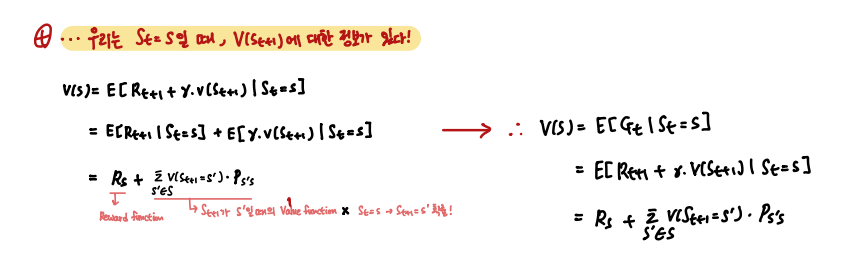 ⊕ ··· 우리는 St=s일 때, V(St+1)에 대한 정보가 있다!
V(s) = E[Rt+1 + γ·V(St+1) | St=s]
= E[Rt+1 | St=s] + E[γ·V(St+1) | St=s]
= Rs + Σ s'∈S V(St+1=s')·Ps's
Reward function
↳ St+1가 s'일때의 Value function × St=s → St+1=s' 확률!
→ ∴ V(s) = E[Gt | St=s]
= E[Rt+1 + γ·V(St+1) | St=s]
= Rs + Σ s'∈S V(St+1=s')·Ps's